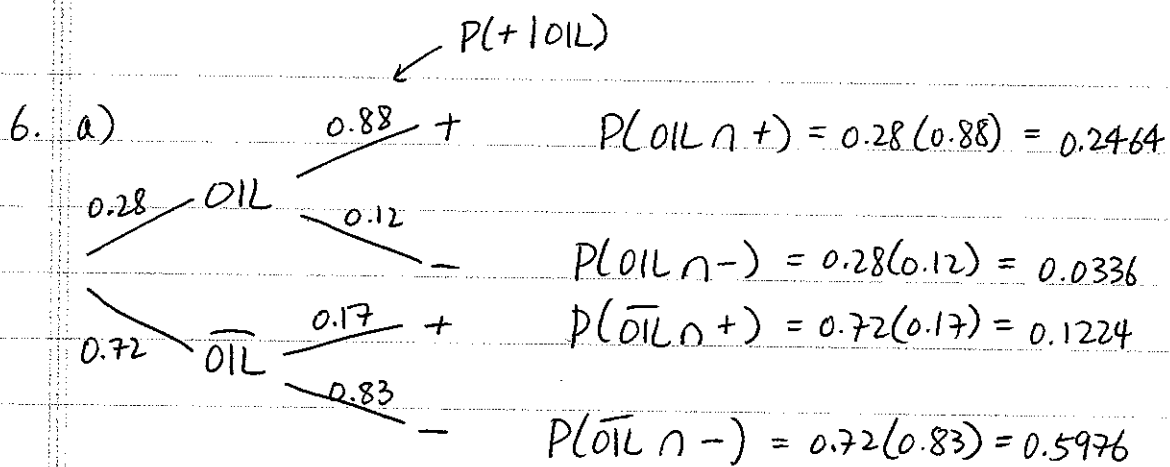 P(+|OIL)
6. a) 0.88 + P(OIL ∩ +) = 0.28(0.88) = 0.2464
0.28 OIL 0.12
- P(OIL ∩ -) = 0.28(0.12) = 0.0336
0.72 O̅I̅L̅ 0.17 + P(O̅I̅L̅ ∩ +) = 0.72(0.17) = 0.1224
0.83
- P(O̅I̅L̅ ∩ -) = 0.72(0.83) = 0.5976